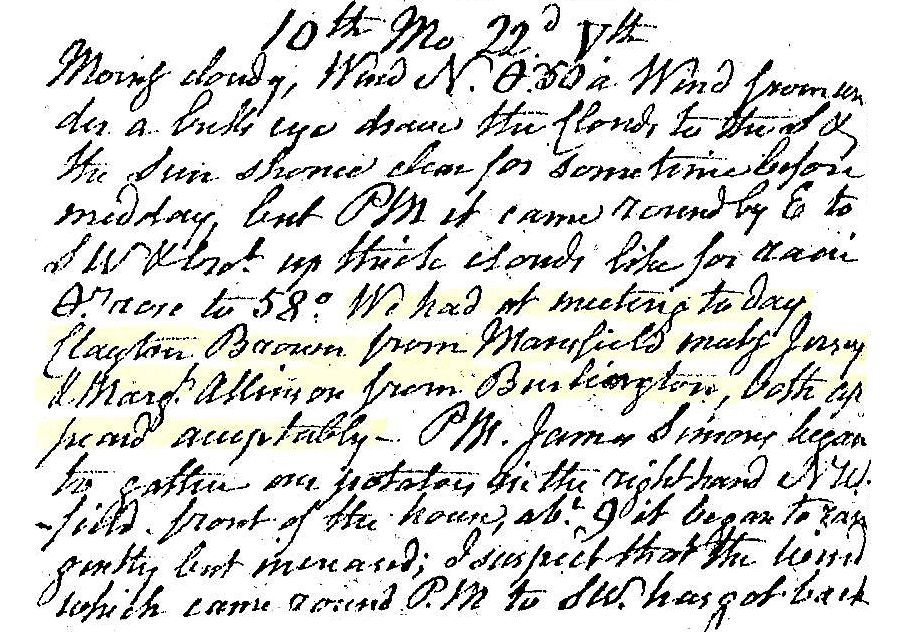 10th Mo 22d Vth
Morng cloudy, Wind N. 50 a Wind from un
der a bulls eye drave the Clouds to the S &
the Sun shone clear for sometime before
midday, but PM it came round by E to
SW & brot. up thick clouds like for rain
rose to 58° We had at meeting to day
Clayton Brown from Mansfield Jersey
& Margt. Allinson from Burlington, both ap
peard acceptably - PM. James Simons began
to gather our potatoes in the right hand N W.
field front of the house, abt. 9 it began to rain
gently but increased; I suspect that the wind
which came round P.M to SW. has got back